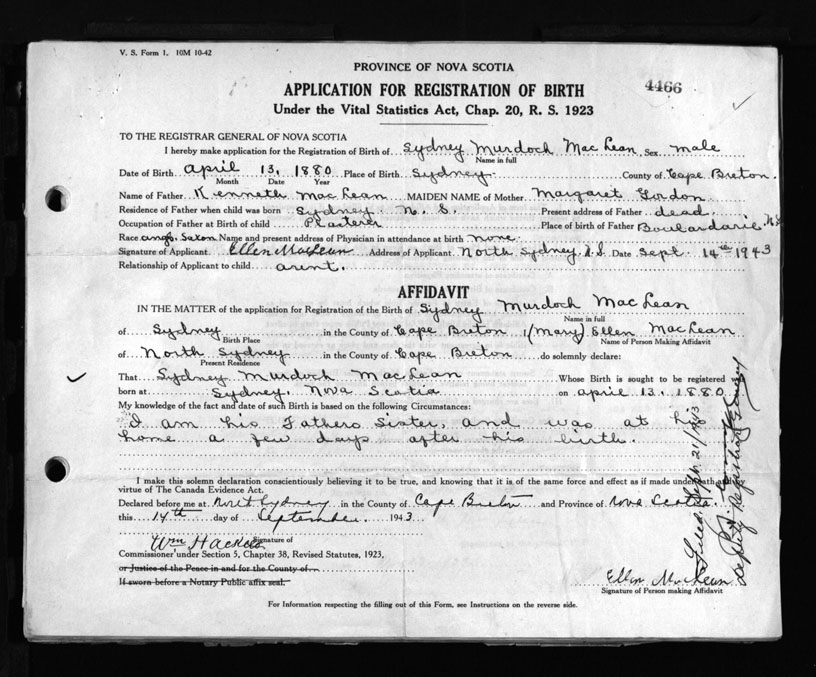 V. S. Form 1. 10M 10-42
PROVINCE OF NOVA SCOTIA
4466
APPLICATION FOR REGISTRATION OF BIRTH
Under the Vital Statistics Act, Chap. 20, R. S. 1923
TO THE REGISTRAR GENERAL OF NOVA SCOTIA
I hereby make application for the Registration of Birth of Sydney Murdoch MacLean, Sex male
Name in full
Date of Birth April 13, 1880 Place of Birth Sydney County of Cape Breton.
Month Date Year
Name of Father Kenneth MacLean MAIDEN NAME of Mother Margaret Gordon
Residence of Father when child was born Sydney N. S. Present address of Father dead.
Occupation of Father at Birth of child Plasterer Place of birth of Father Boulardarie N.S.
Race anglo. Saxon Name and present address of Physician in attendance at birth none
Signature of Applicant Ellen MacLean Address of Applicant North Sydney N.S. Date Sept 14th 1943
Relationship of Applicant to child arent.
AFFIDAVIT
IN THE MATTER of the application for Registration of the Birth of Sydney Murdoch MacLean
Name in full
of Sydney in the County of Cape Breton I (Mary) Ellen MacLean
Birth Place Name of Person Making Affidavit
of North Sydney in the County of Cape Breton do solemnly declare:
Present Residence
That Sydney Murdoch MacLean Whose Birth is sought to be registered was
born at Sydney, Nova Scotia on April 13, 1880
My knowledge of the fact and date of such Birth is based on the following Circumstances:
I am his Fathers Sister, and was at his
home a few days after his birth.
I make this solemn declaration conscientiously believing it to be true, and knowing that it is of the same force and effect as if made under oath and by
virtue of The Canada Evidence Act.
Declared before me at North Sydney in the County of Cape Breton and Province of Nova Scotia
this 14th day of September 1943
Wm Hackett
Signature of
Commissioner under Section 5, Chapter 38, Revised Statutes, 1923,
or Justice of the Peace in and for the County of
If sworn before a Notary Public affix seal.
Ellen MacLean
Signature of Person making Affidavit
For Information respecting the filling out of this Form, see Instructions on the reverse side.
Filed Sept. 21/1943
Deputy Registrar General